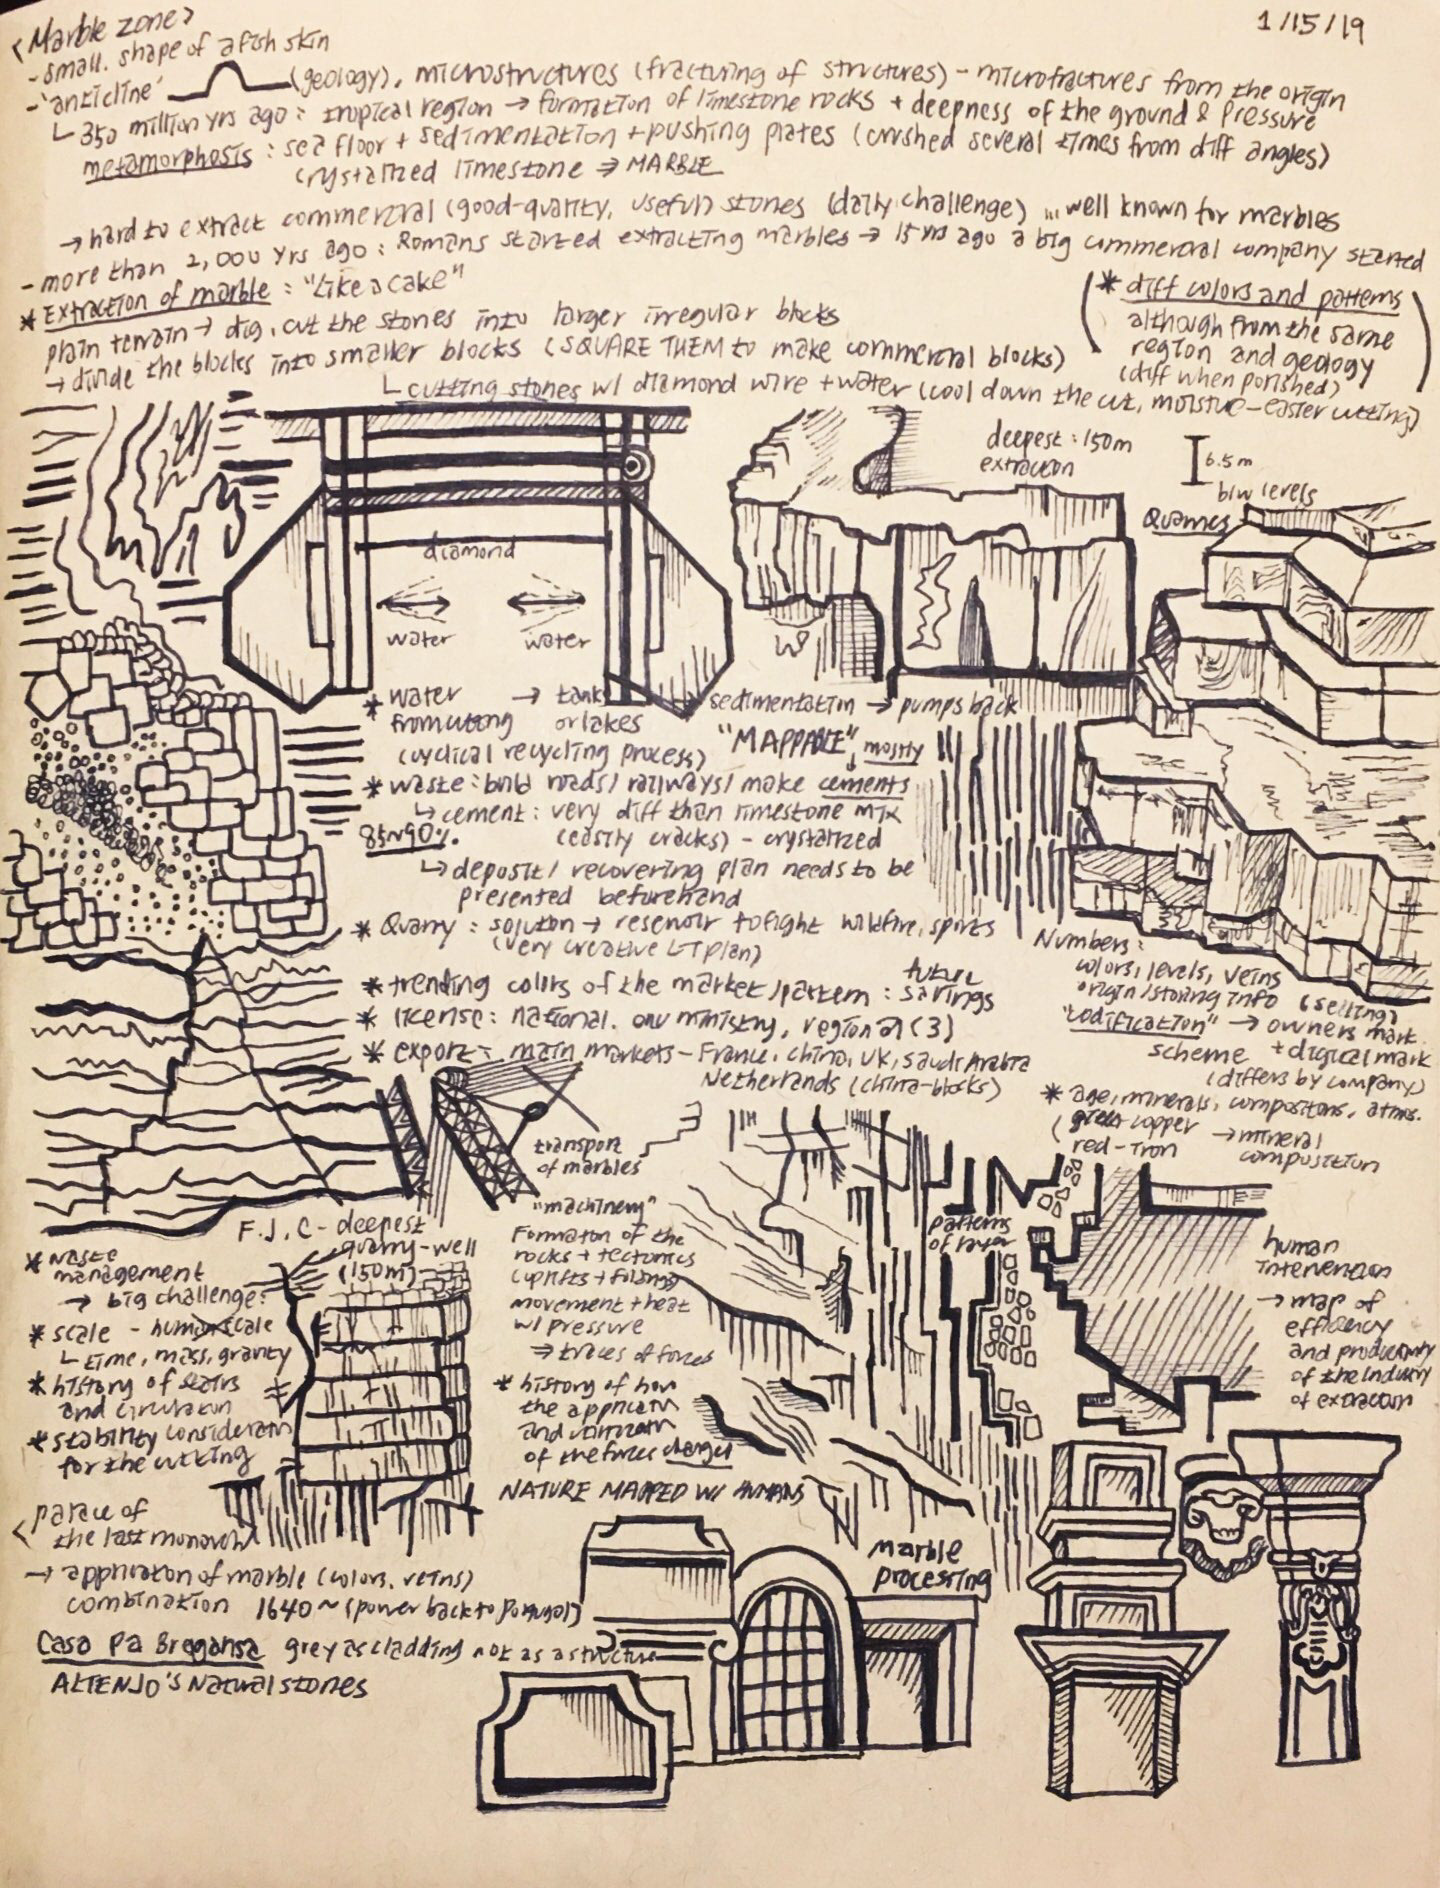 1/15/19
<Marble zone>
- small. shape of a fish skin
- 'anticline' (geology), microstructures (fracturing of structures) - microfractures from the origin
350 million yrs ago : tropical region → formation of limestone rocks + deepness of the ground & Pressure
metamorphosis : sea floor + sedimentation + pushing plates (crushed several times from diff angles)
crystallized limestone ⇒ MARBLE
→ hard to extract commercial (good-quality, useful) stones (daily challenge) ... well known for marbles
- more than 2,000 yrs ago : Romans started extracting marbles → 15 yrs ago a big commercial company started
* Extraction of marble : "Like a cake"
plain terrain → dig, cut the stones into larger irregular blocks
→ divide the blocks into smaller blocks (SQUARE THEM to make commercial blocks)
cutting stones w/ diamond wire + water (cool down the cut, moisture - easier cutting)
(* diff colors and patterns
although from the same
region and geology
(diff when polished)
deepest : 150m
extraction
6.5m
btw levels
Quarries
diamond
water
water
* water → tank → sedimentation → pumps back
from cutting or lakes
(cyclical recycling process)
"MAPPABLE"
mostly
* waste : build roads / railways / make cements
↳ cement : very diff than limestone mix
85~90%.
(easily cracks) - crystalized
↳ deposit / recovering plan needs to be
presented beforehand
* Quarry : solution → reservoir to fight wildfire, sports
(very creative LT plan)
* trending colors of the market / pattern : future
savings
* license : national. env ministry, regional (3)
* export : main markets - France, China, UK, Saudi Arabia
Netherlands (china-blocks)
Numbers :
colors, levels, veins
origin / storing info (selling)
"codification" → owners mark
scheme + digital mark
(differs by company)
* age, minerals, compositions, atmos.
( green copper → mineral
red - iron composition
transport
of marbles
"machinery"
Formation of the
rocks + tectonics
(uplifts + folding
movement + heat
w/ pressure
⇒ traces of forces
* history of how
the application
and utilization
of the forces changed
NATURE MAPPED W/ HUMANS
patterns
of layer
human
intervention
→ map of
efficiency
and productivity
of the industry
of extraction
F.J.C - deepest
quarry - well
(150m)
* waste
management
→ big challenge :
* scale - human scale
↳ time, mass, gravity
* history of stairs
and circulation
* stability consideration
for the cutting
< palace of
the last monarch
→ application of marble (colors, veins)
combination 1640 ~ (power back to Portugal)
Casa Pa Bragansa grey as cladding not as a structure
ALTENJO'S Natural stones
Marble
processing